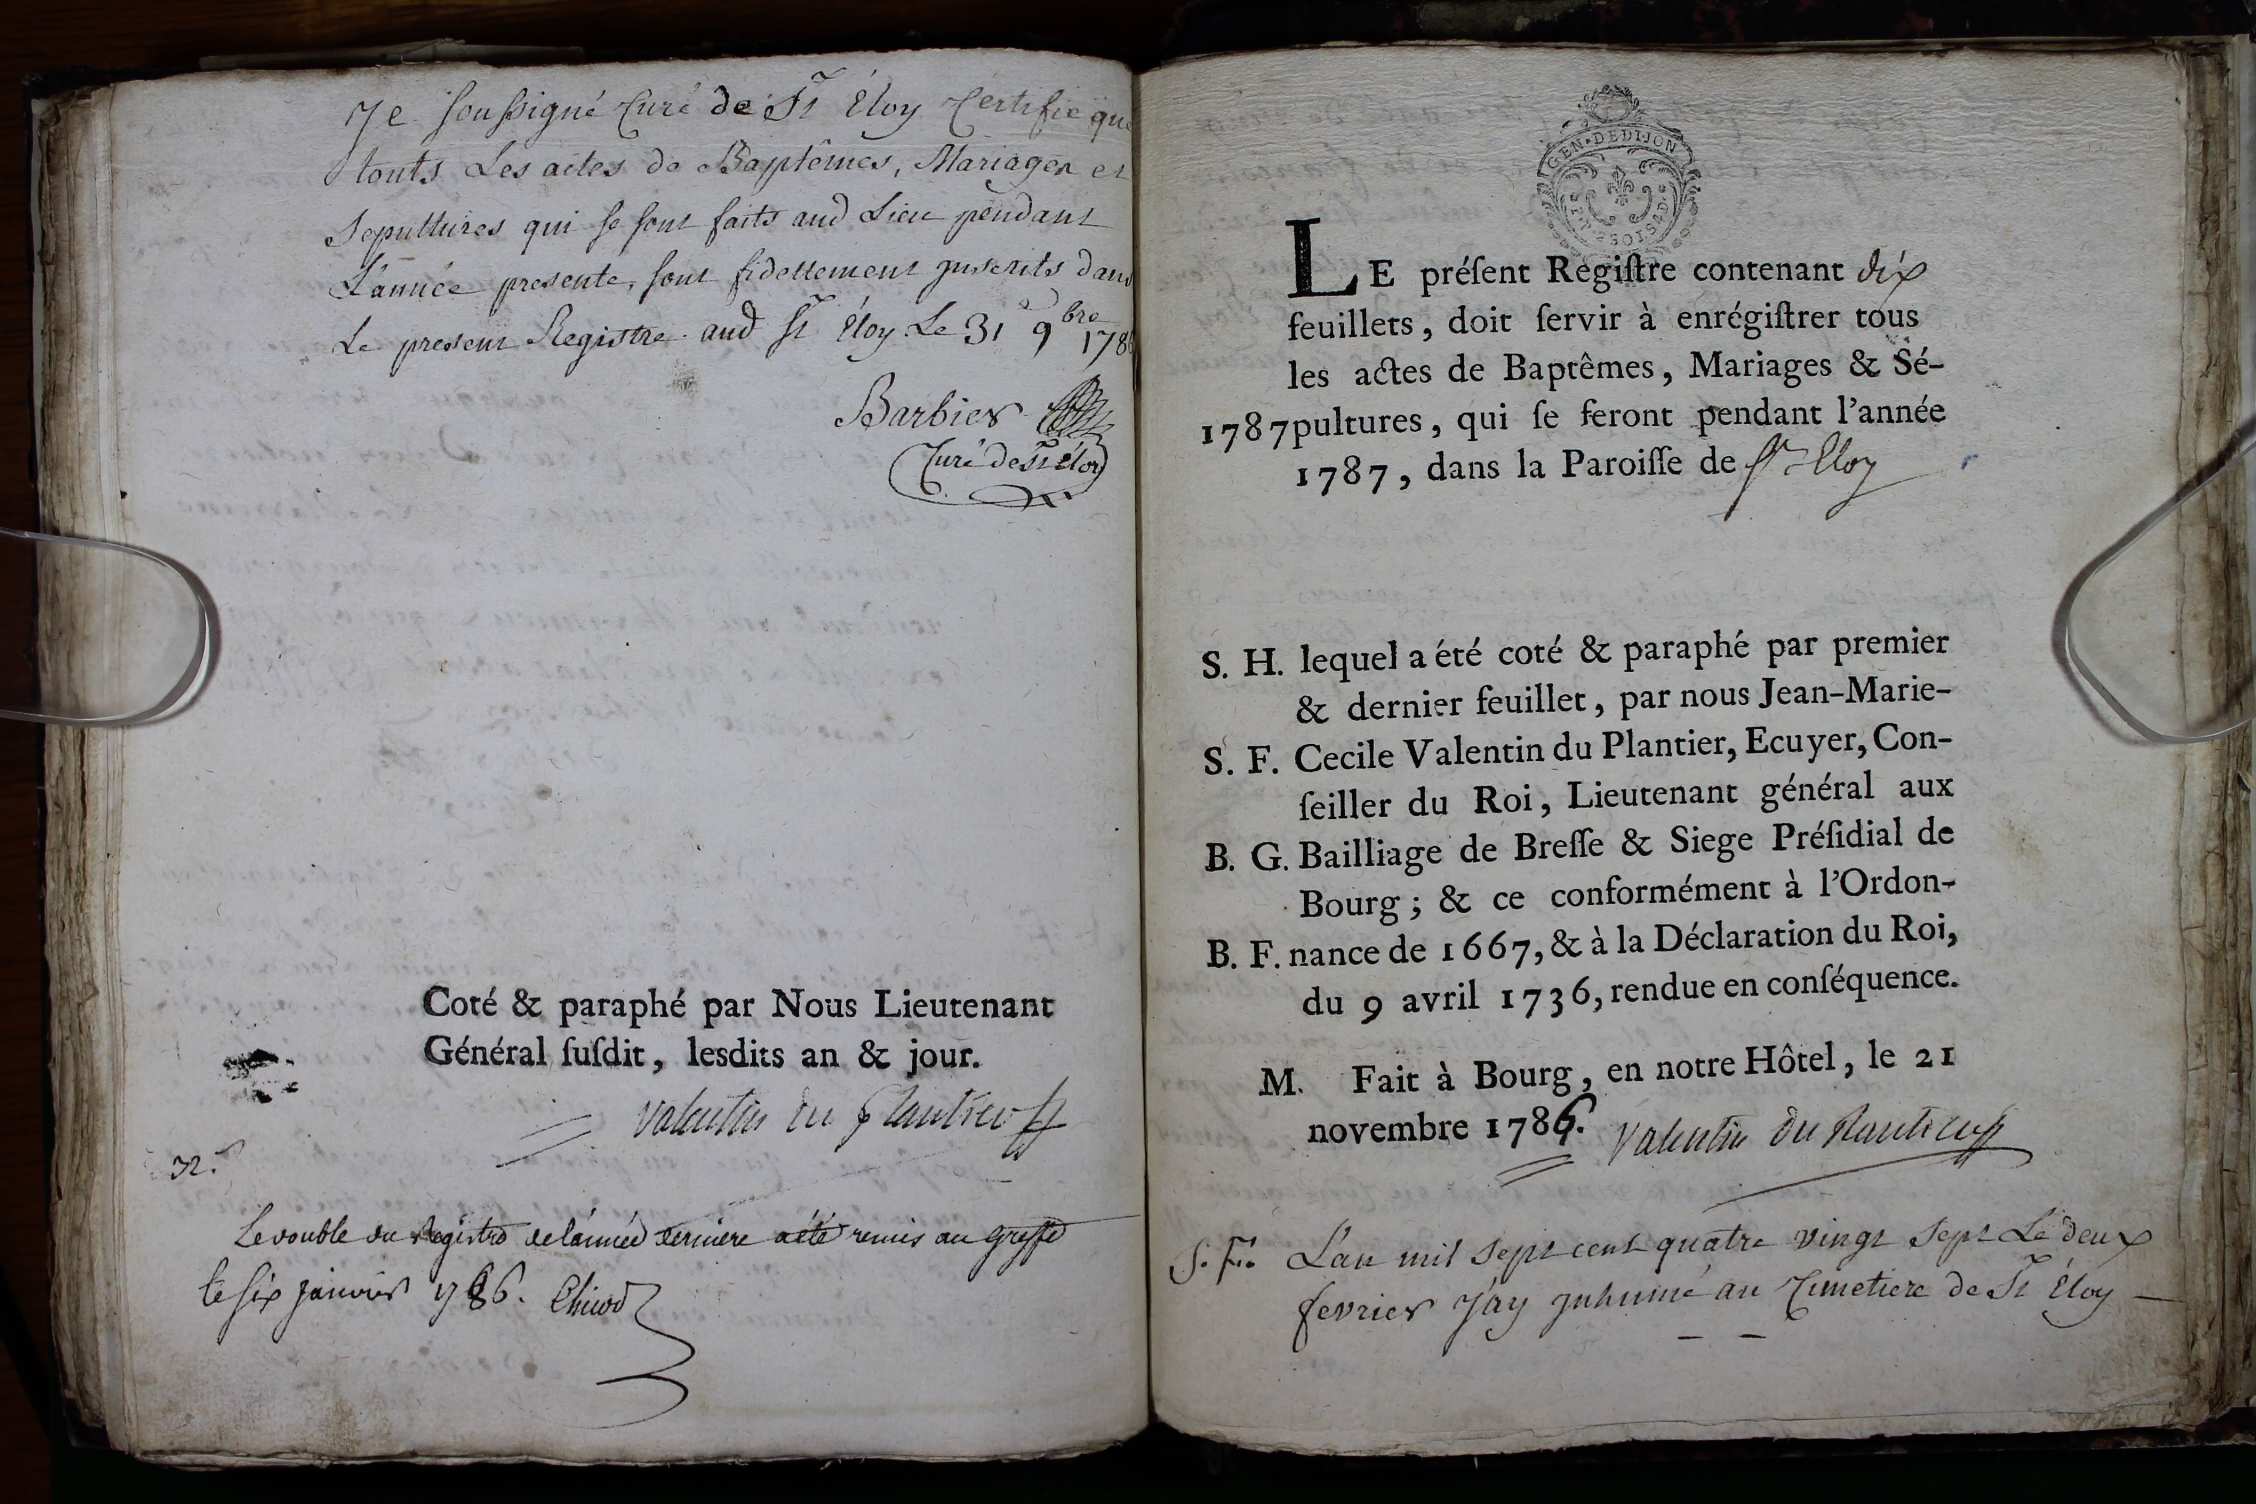 Je soussigné Curé de St Éloy Certifie que
touts Les actes de Baptêmes, Mariages et
Sepultures qui se sont faits aud Lieu pendant
L'année presente, sont fidellement jnscrits dans
Le present Registre. aud St Éloy Le 31 9bre 1786
Barbier
Curé de St Eloy
Coté & paraphé par Nous Lieutenant
Général suſdit, lesdits an & jour.
Valentin du Plantier
Le double du Registre de lánneé derniere a été remis au greffe
le six janvier 1786.
GEN·DEDIJON
LE préſent Regiſtre contenant dix
feuillets, doit ſervir à enrégiſtrer tous
les actes de Baptêmes, Mariages & Sé-
1787 pultures, qui ſe feront pendant l'année
1787, dans la Paroiſſe de St Eloy
S. H. lequel a été coté & paraphé par premier
& dernier feuillet, par nous Jean-Marie-
S. F. Cecile Valentin du Plantier, Ecuyer, Con-
ſeiller du Roi, Lieutenant général aux
B. G. Bailliage de Breſſe & Siege Préſidial de
Bourg; & ce conformément à l'Ordon-
B. F. nance de 1667, & à la Déclaration du Roi,
du 9 avril 1736, rendue en conſéquence.
M. Fait à Bourg, en notre Hôtel, le 21
novembre 1786. Valentin du Plantier
S. F. L'an mil sept cent quatre vingt sept Le deux
fevrier J'ay jnhumé au Cimetiere de St Éloy —